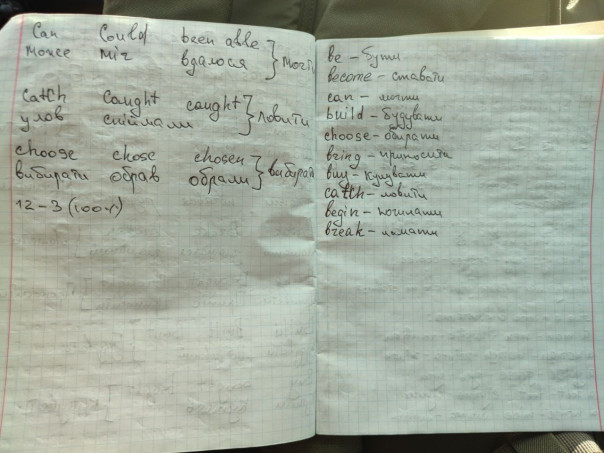 Can Could been able
може міг вдалося } могти
catch caught caught
улов спіймали } ловити
choose chose chosen
вибирати обрав обрали } вибирати
12-3
be – бути
become – ставати
can – могти
build – будувати
choose – обирати
bring – приносити
buy – купувати
catch – ловити
begin – починати
break – ламати